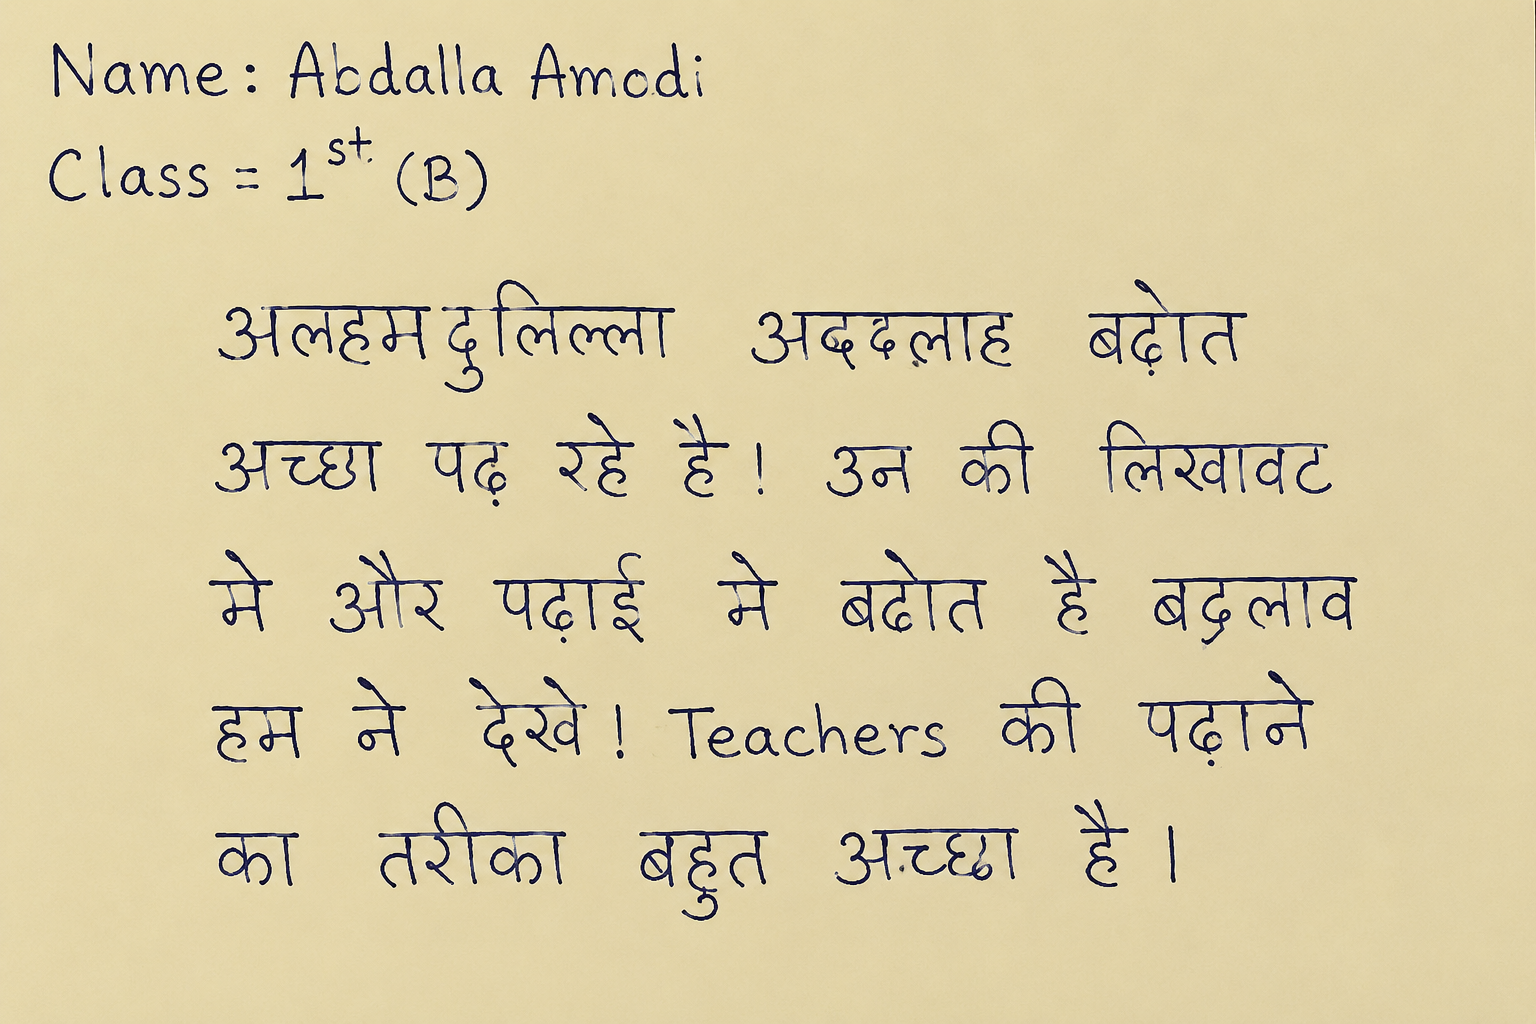 Name: Abdalla Amodi
Class = 1st. (B)
अलहमदुलिल्ला अददल़ाह बढ़ोत
अच्छा पढ़ रहे है! उन की लिखावट
मे और पढ़ाई मे बढोत है बद्रलाव
हम ने देखे! Teachers की पढ़ाने
का तरीका बहुत अच्छा है।